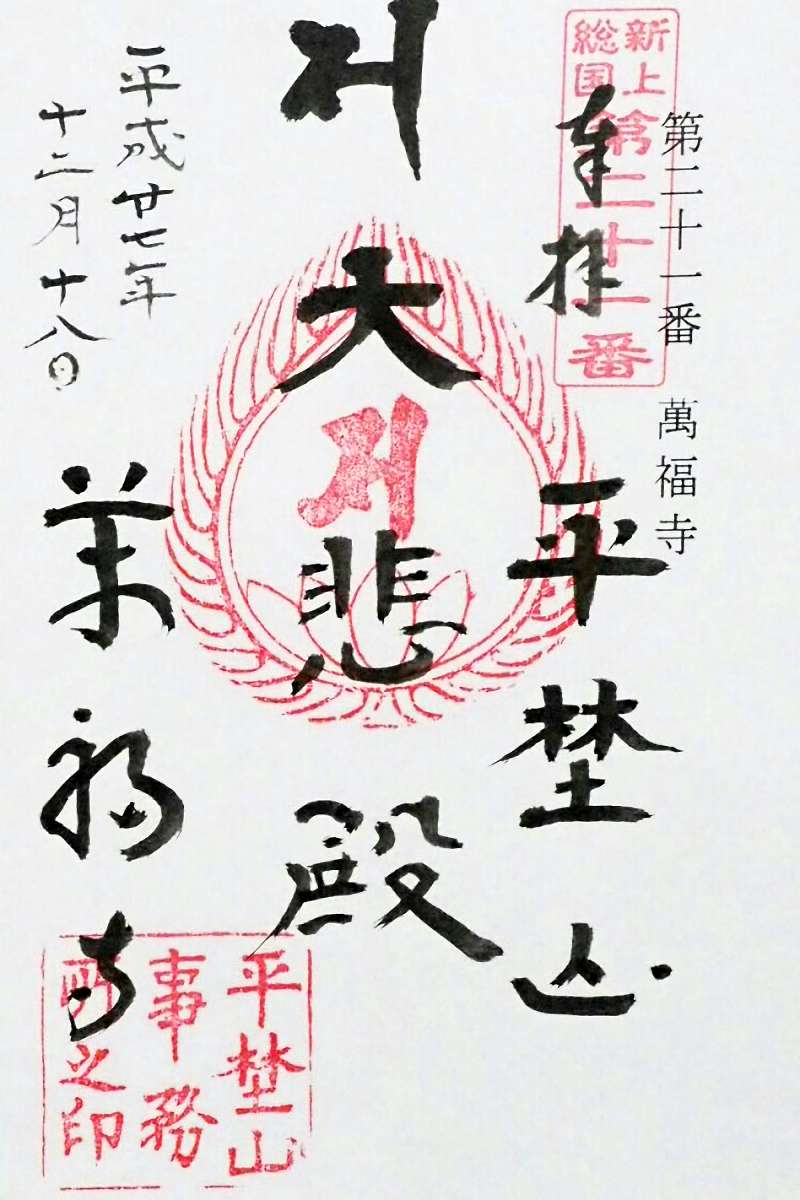 第二十一番 萬福寺
新上
総国
第二十一番
奉拝
平埜山
大悲殿
平成廿七年
十二月十八日
萬福寺
平埜山
事務
所之印